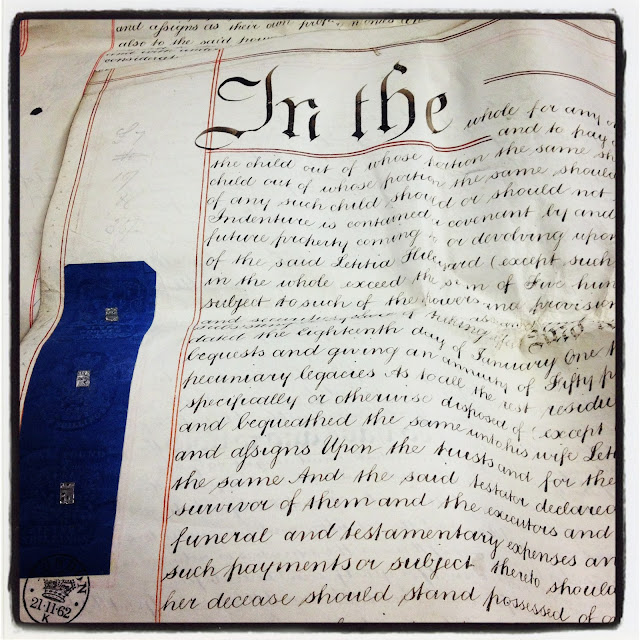 and assigns as their own
also to the said
considerat
In the
whole for any
and to pay
the child out of whose portion the same sh
child out of whose portion the same should
of any such child should or should not
Indenture is contained a covenant by and
future property coming to or devolving upon
of the said Letitia Hilyard (except such
in the whole exceed the sum of Five hun
subject to such of the powers and provision
dated the eighteenth day of January One t
bequests and giving an annuity of Fifty p
pecuniary legacies As to all the rest residu
specifically or otherwise disposed of (except
and bequeathed the same unto his wife Leti
and assigns Upon the trusts and for the
the same And the said testator declared
survivor of them and the executors and
funeral and testamentary expenses an
such payments or subject thereto should
her decease should stand possessed of
21·11·62
K